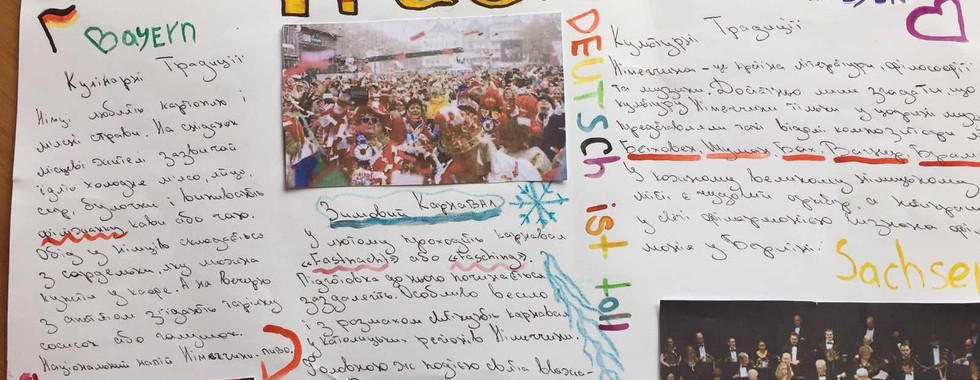 Bayern
Кулінарні Традиції
Німці люблять картоплю і
м'ясні страви. На сніданок
місцеві жителі зазвичай
їдять холодне м'ясо, яйця,
сир, булочки і випивають
філіжанку кави або чаю.
Обід у німців складається
з сардельки, яку можна
купити у кафе. А на вечерю
з апетитом з'їдають тарілку
сосисок або галушок.
Національний напій Німеччини - пиво.
Зимовий Карнавал
У лютому проходить карнавал
«Fastnacht» або «Fasching».
Підготовка до нього починається
заздалегідь. Особливо весело
і з розмахом святкують карнавал
у католицьких регіонів Німеччини.
Головною ж подією свята вважа-
DEUTSCH ist toll
Культурні Традиції
Німеччина - це країна літератури, філософії
та музики. Достатньо лише згадати, що
культуру Німеччини тільки у напрямі муз
представляли такі відомі композитори
Бетховен, Шуман, Бах, Вагнер, Брамс
У кожному великому німецькому
місті є чудовий оркестр, а найкращою
у світі філармонією визнана філ
монія у Берліні.
Sachsen